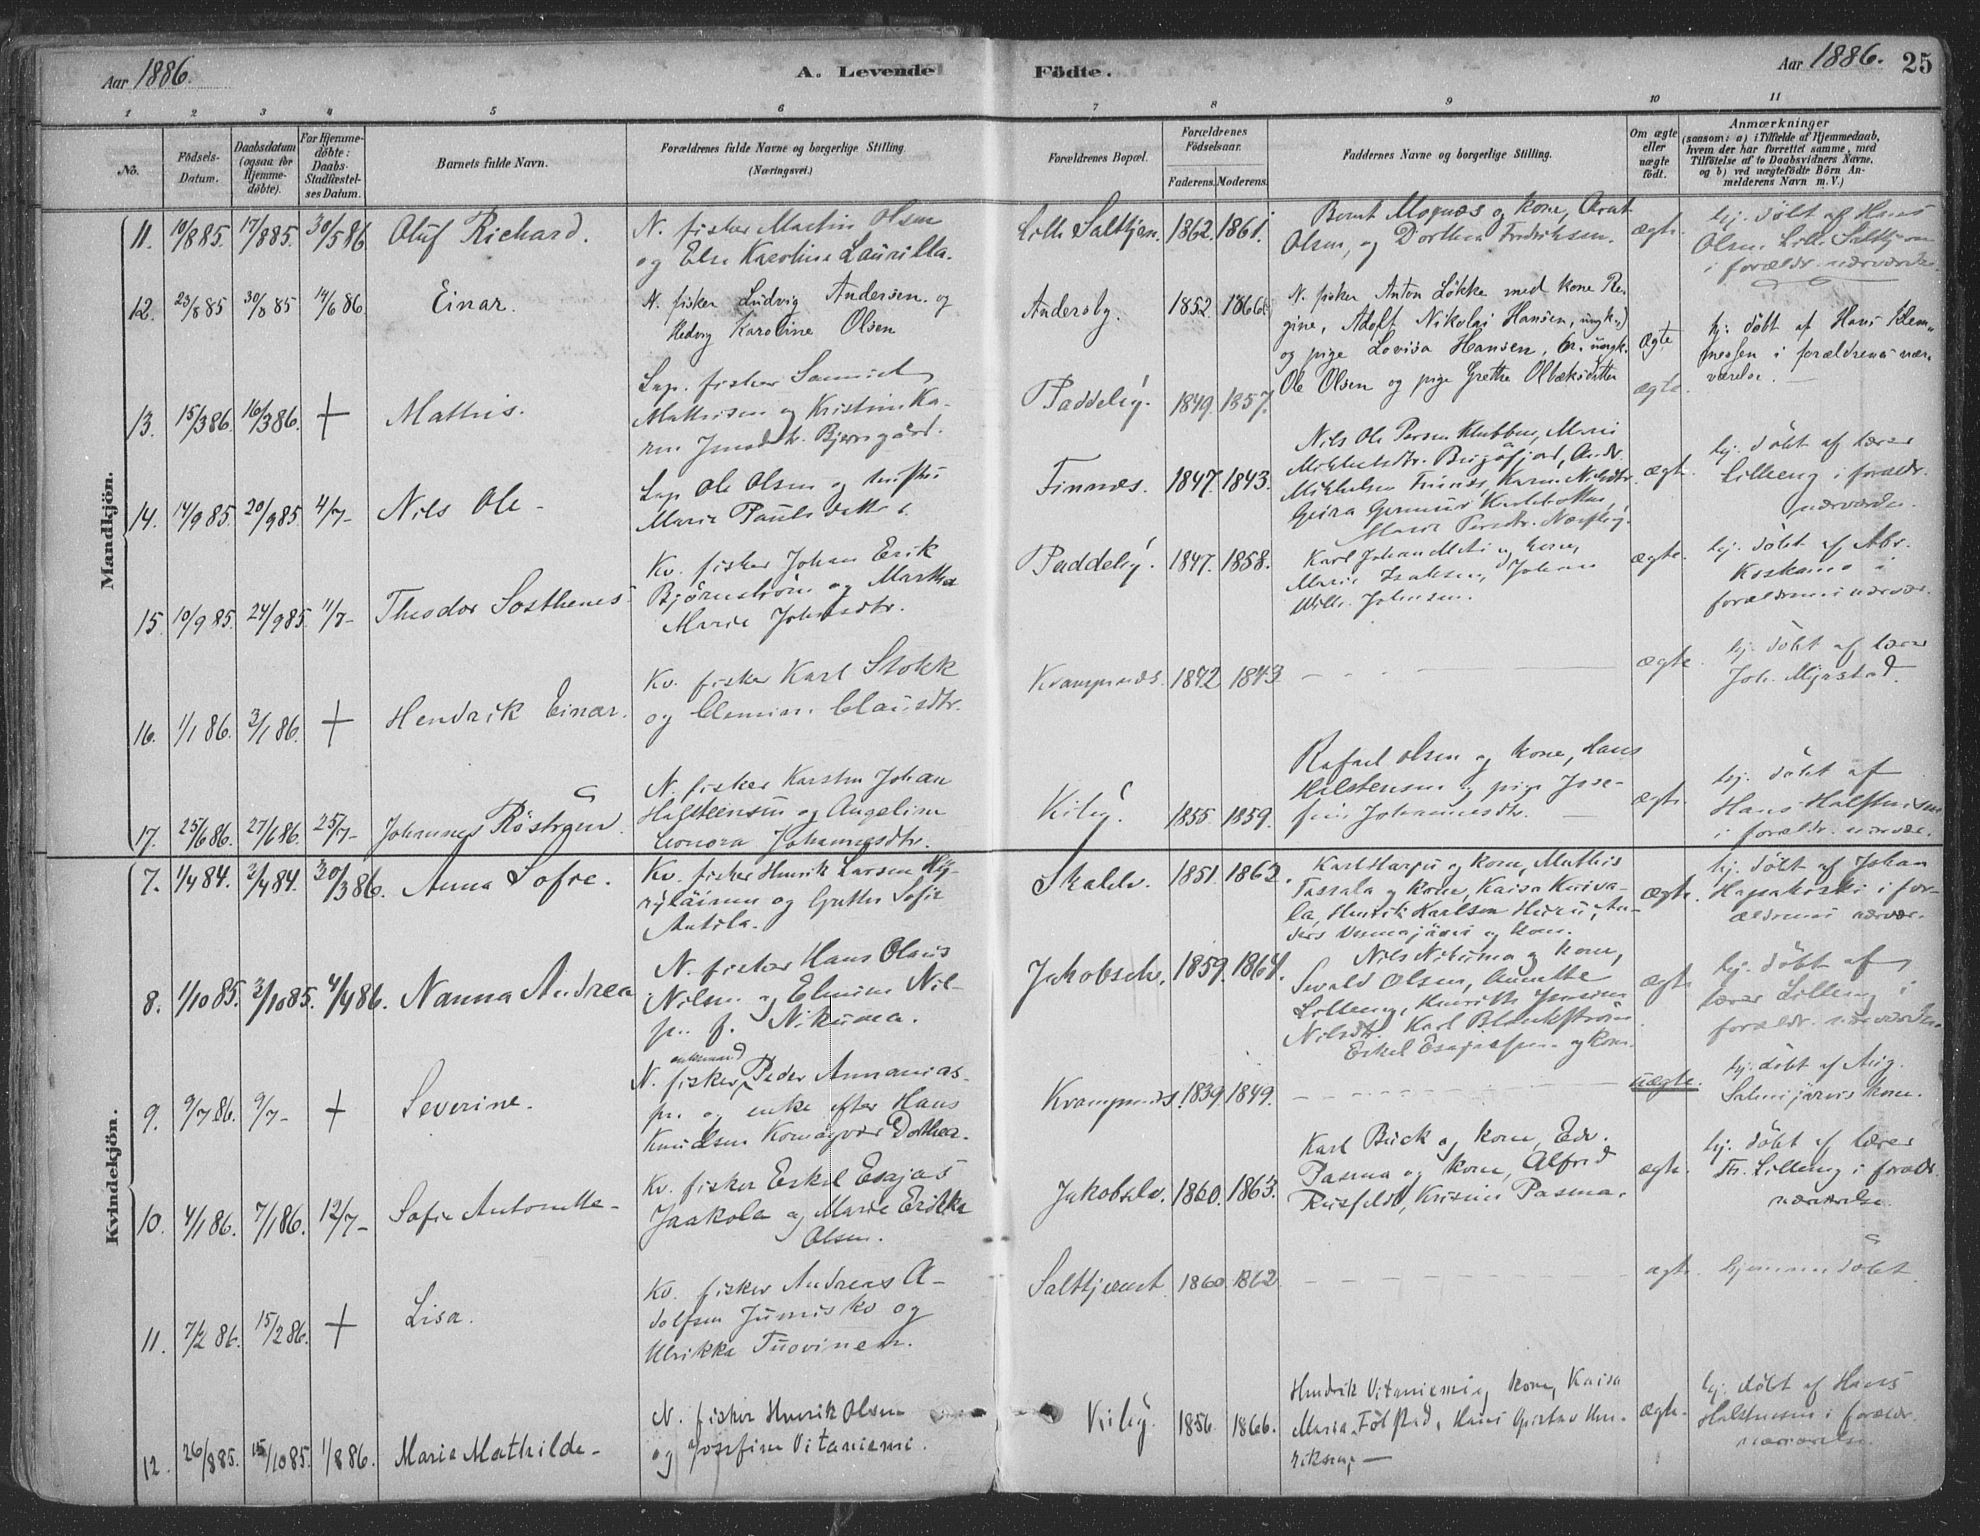 Aar 1886. A. Levende Födte. Aar 1886. 25
1 2 3 4 5 6 7 8 9 10 11
No.
Födsels-
Datum.
Daabsdatum
(ogsaa for
Hjemme-
döbte).
For Hjemme-
döbte:
Daabs-
Stadfæstel-
ses Datum.
Barnets fulde Navn.
Forældrenes fulde Navne og borgerlige Stilling.
(Næringsvei.)
Forældrenes Bopæl.
Forældrenes
Födselsaar.
Faderens. Moderens.
Faddernes Navne og borgerlige Stilling.
Om ægte
eller
uægte
födt.
Anmærkninger
(saasom: a) i Tilfælde af Hjemmedaab,
hvem der har forrettet samme, med
Tilföielse af to Daabsvidners Navne,
og b) ved uægtefödte Börn An-
melderens Navn m. V.)
Mandkjön.
11. 10/8 85. 17/8 85. 30/5 86 Oluf Richard.
N. fisker Martin Olsen
og Else Karoline Lauritta.
Lille Saltkjern. 1862. 1861.
og kone,
Olsen, og Dorthea Fredriksen.
ægte.
hj. döbt af Hans
Olsen Lille Saltkjern
i forældr. nærværelse.
12. 23/8 85 30/8 85 14/6 86 Einar.
N. fisker Ludvig Andersen og
Hedvig Karoline Olsen
Andersby. 1852 1866
N. fisker Anton Løkke med kone Re-
gine, Adolf Nikolai Hansen, ungk.,
og pige Lovisa Hansen, ungk.
Ole Olsen og pige Grethe
Ægte
hj. döbt af Hans Klem-
mesen i forældrenes nær-
værelse.
13. 15/3 86. 16/3 86. + Mathis.
Lap. fisker Samuel
Mathisen og Kristine Ka-
ren
Paddeby. 1849. 1857.
ægte.
14. 14/9 85. 20/9 85 4/7 - Nils Ole -
Lap Ole Olsen og hustru
Marie Pauls datter.
Finnæs. 1847. 1843.
Nils Ole Persen Klubben, Marie
Mikkelsdtr.
Mikkelsen Finnæs, Karen Nilsdtr.
ægte.
hj. döbt af lærer
Lilleeng i forældr.
nærværelse.
15. 10/9 85. 24/9 85 11/7 - Theodor Sosthenes.
Kv. fisker Johan Erik
Björnström og Martha
Marie Johnsdtr.
Paddeby. 1847. 1858.
Karl Johan og kone,
Marie Isaksen, Johan
Johnsen.
ægte.
hj. döbt af Abr.
Koskamo i
forældrenes nærvær.
16. 1/1 86. 3/1 86. + Hendrik Einar.
Kv. fisker Karl Stokk
og Clausdtr.
Krampenæs. 1842 1843
ægte.
hj. döbt af lærer
Joh. Myrstad.
17. 25/6 86. 27/6 86. 25/7 - Johannes
N. fisker Karsten Johan
Halsteensen og Angeline
Leonora Johannesdtr.
Kiby. 1855. 1859.
Rafael Olsen og kone, Hans
Halstensen og pige Jose-
fine Johannesdtr.
ægte.
hj. döbt af
Hans Halstensen
i forældr. nærvær.
Kvindekjön.
7. 1/4 84. 2/4 84. 30/3 86. Anna Sofie.
Kv. fisker Henrik Larsen
og Grethe Sofie
Antila.
Skaldv. 1851. 1862.
og kone, Mathis
Tassala og kone, Kaisa
Henrik Karlsen
og kone.
ægte.
hj. döbt af Johan
i for-
ældrenes nærvær.
8. 1/10 85. 3/10 85. 4/4 86. Nanna Andrea
N. fisker Hans Olaus
Nilsen og Elmine Nil-
sen f. Nikuma.
Jakobselv. 1859. 1864.
Nils Nikuma og kone,
Sevald Olsen, Annette
Lilleeng, Henrik
Nilsdtr. Karl Blankström
og kone.
ægte
hj. döbt af
lærer Lilleeng i
forældr. nærværelse.
9. 9/7 86. 9/7 - + Severine.
N. fisker, enkemand Peder Annanias-
sen og enke efter Hans
Knudsen Komagvær Dothea.
Krampenæs. 1839. 1849.
uægte.
hj. döbt af Aug.
Salmijärvis kone.
10. 4/1 86. 7/1 86. 12/7 - Sofie Antonette -
Kv. fisker Erkel Esajas
Jaakola og Marie Erikka
Olsen.
Jakobselv. 1860. 1863.
Karl Buck og kone, Edv.
Pasma og kone, Alfred
Rusfeldt, Kristine Pasma.
ægte.
hj. döbt af lærer
Th. Lilleeng i forældr.
nærværelse.
11. 7/2 86. 15/2 86. + Lisa.
Kv. fisker Andreas A-
dolfsen Jumisko og
Ulrikka Tuovinen.
Saltkjernet 1860. 1862
ægte.
hjemmedöbt.
12. 26/8 85. 15/10 85. 1/8 86. Marie Mathilde -
N. fisker Henrik Olsen
og Josefine Vitaniemi.
Kiby. 1856. 1866.
Hendrik Vitaniemi og kone, Kaisa
Maria Fölstad, Hans Gustav Hen-
riksen, —
ægte.
hj. döbt af Hans
Halstensen i forældr.
nærværelse.